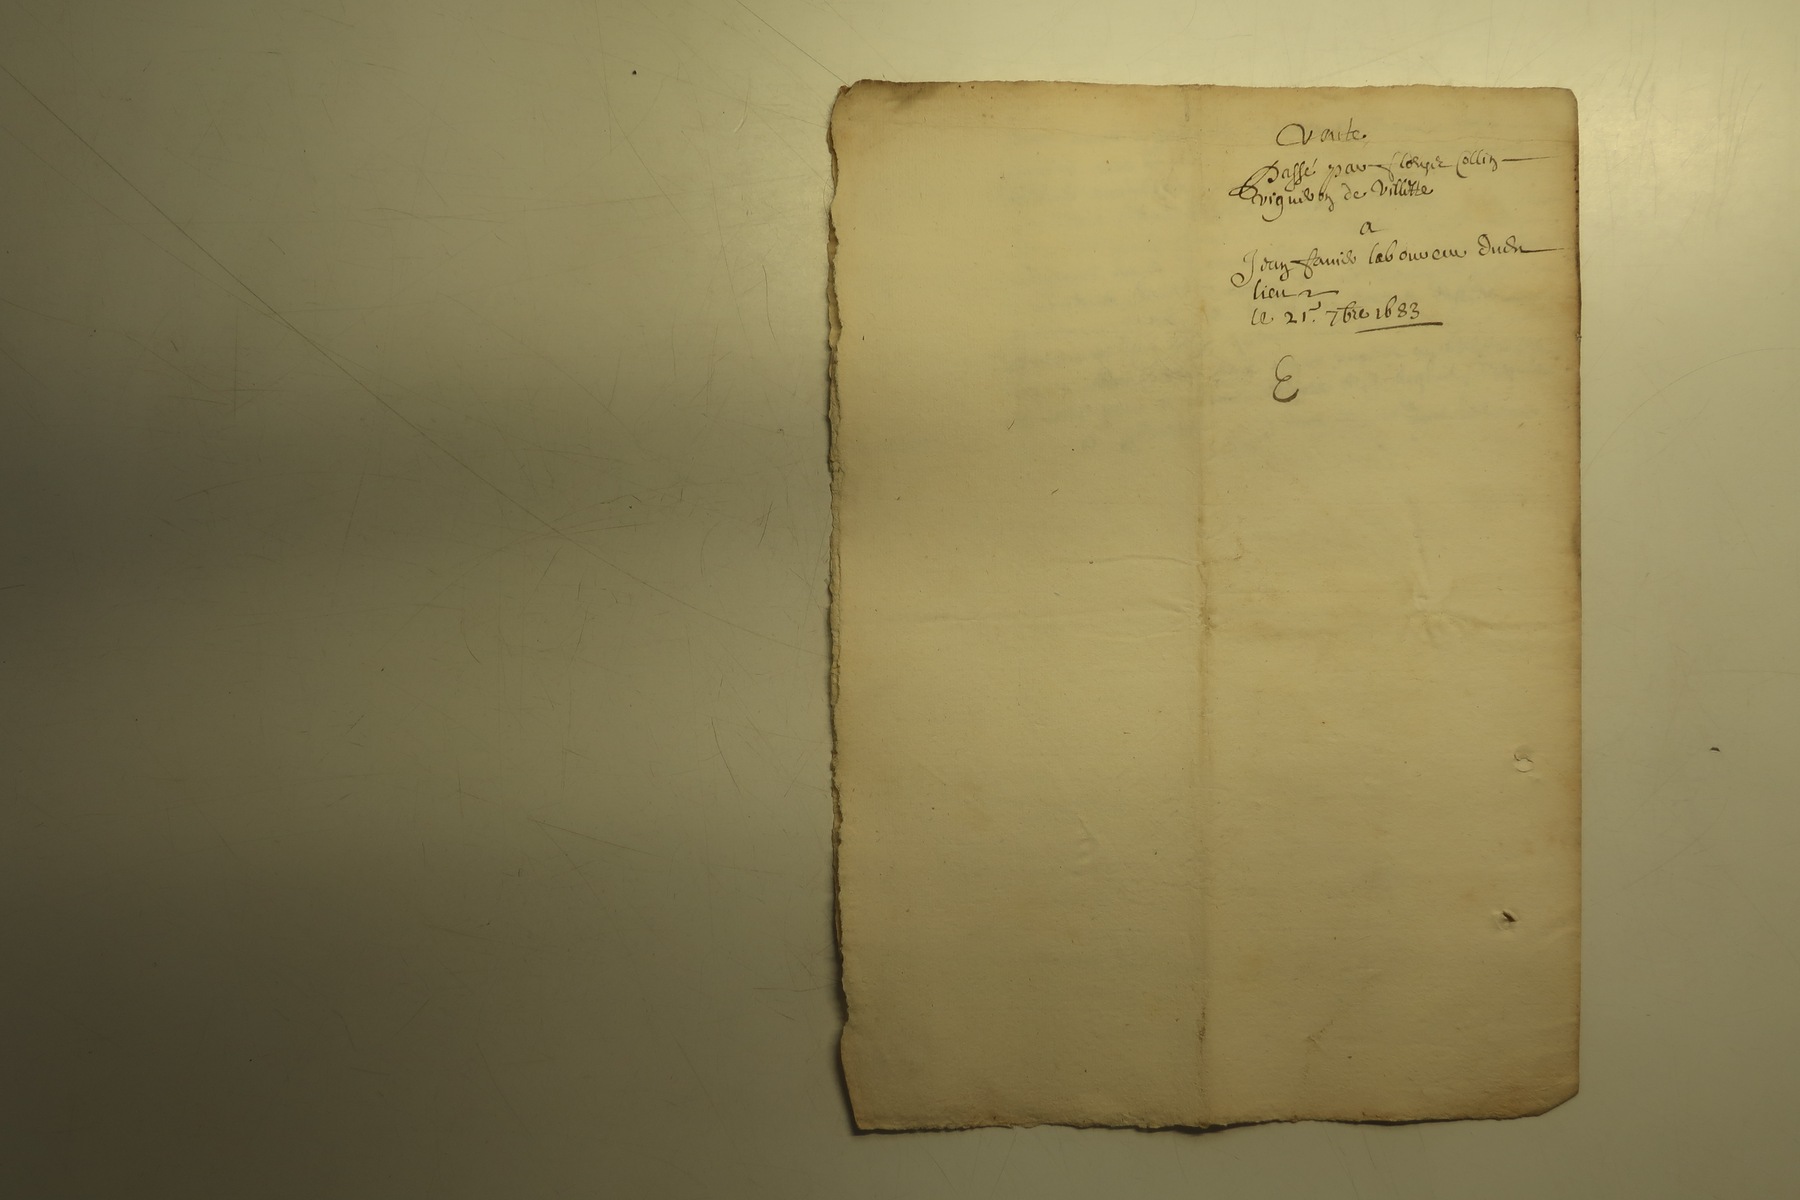 Vente
Passé par Collin
vigneron de Villette
a
Jean laboureur dudit
lieu
le 21e 7bre 1683
E